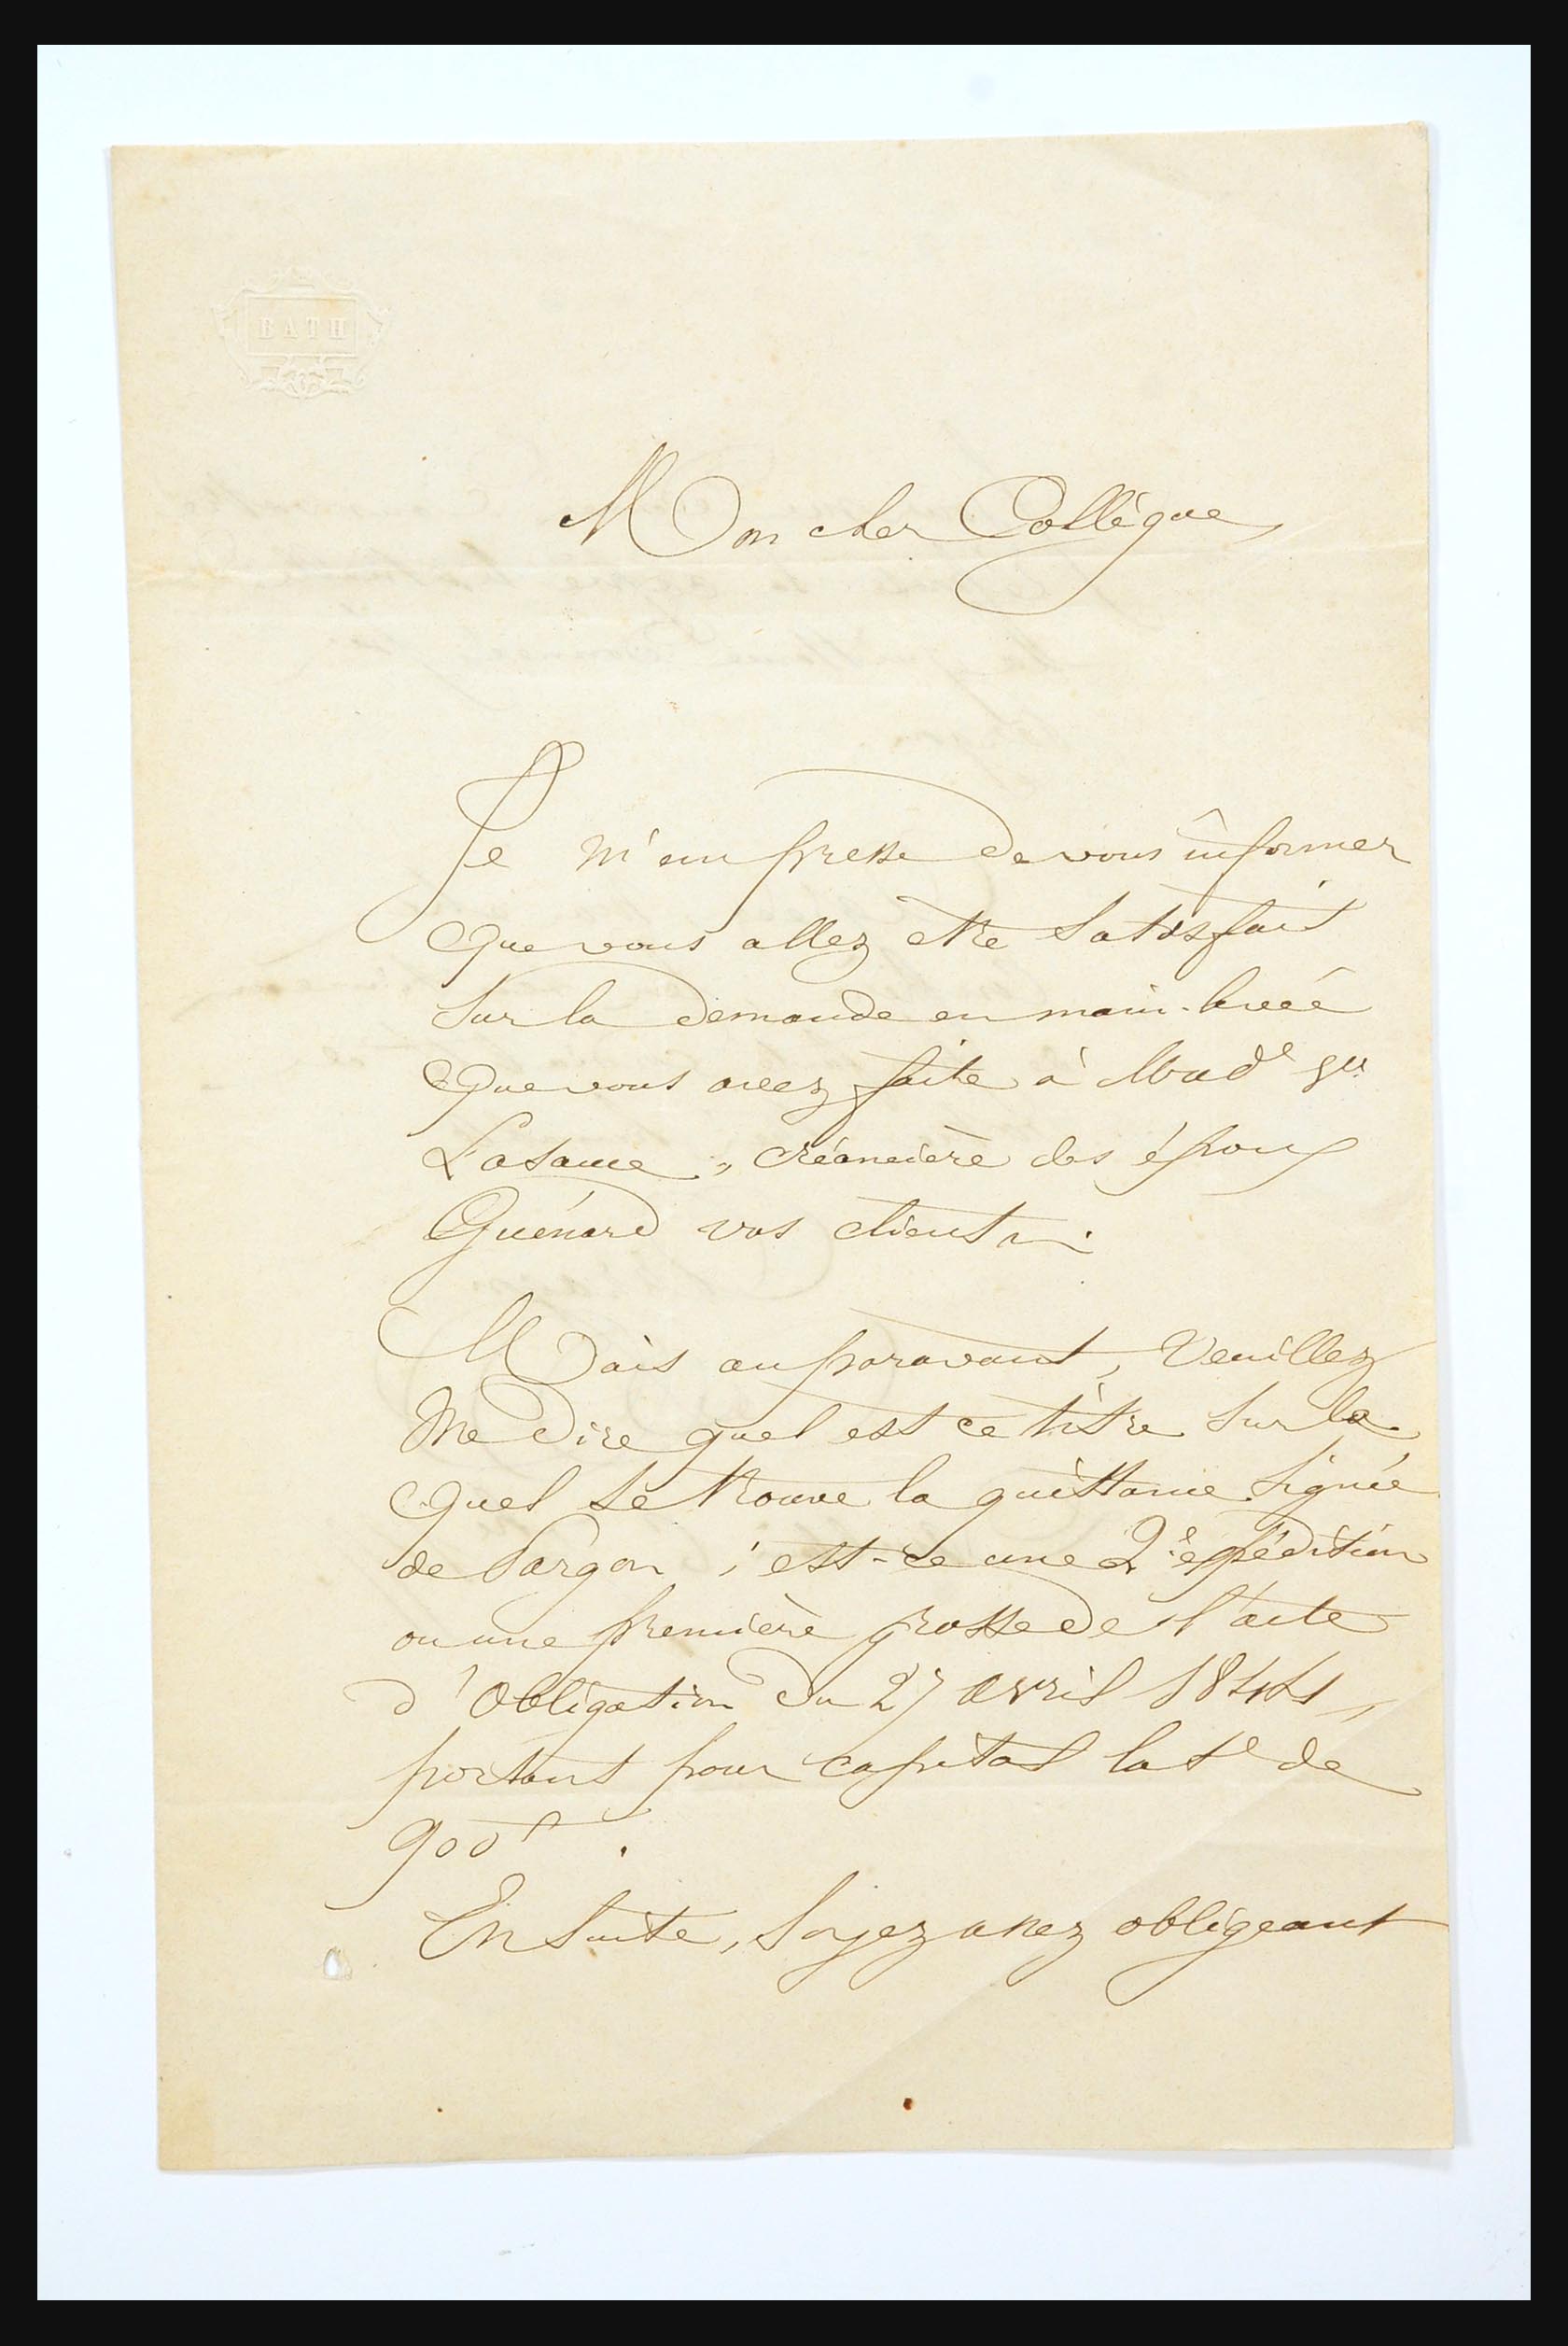 BATH
Mon cher Collègue,
Je m'empresse de vous informer
que vous allez être satisfait
sur la demande en main-levée
que vous avez faite à Mad.e
créancière des époux
Guénard vos clients.
Mais auparavant, Veuillez
me dire quel est ce titre sur le
quel se trouve la quittance signée
de Pargon ; est-ce une 2.e expédition
ou une première grosse de l'acte
d'obligation du 27 avril 1844,
portant pour capital la s.e de
900f.
En suite, soyez assez obligeant